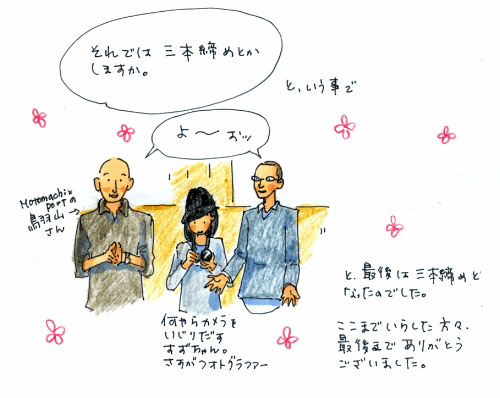 それでは 三本締めとか
しますか。
と、いう事で
よ〜おッ
Motomachi
portの
鳥羽山→
さん
何やらカメラを
いじりだす
すずちゃん。
さすがフォトグラファー
と、最後は三本締めと
なったのでした。
ここまでいらした方々、
最後まで ありがとう
ございました。